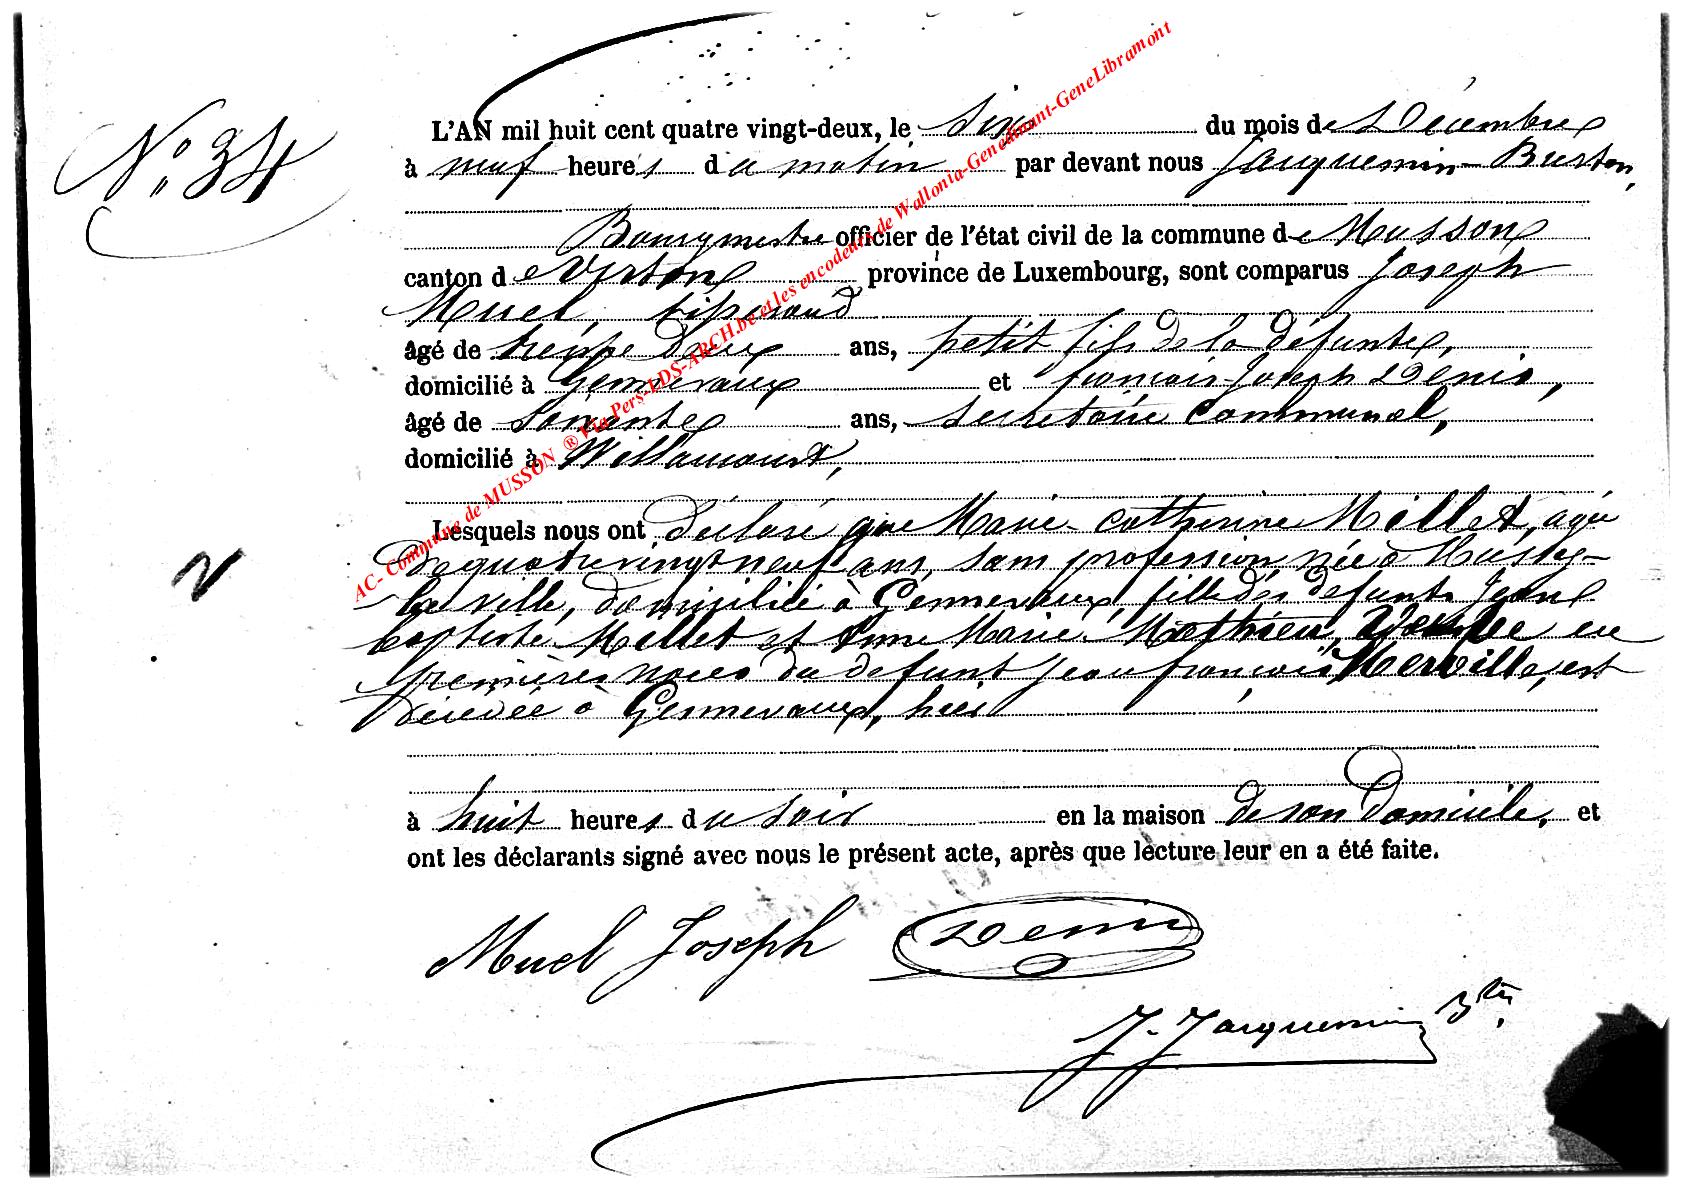 N° 34
L'AN mil huit cent quatre vingt-deux, le six du mois de Décembre
à neuf heures du matin par devant nous Jacquemin-Burton,
Bourgmestre officier de l'état civil de la commune de Musson
canton de Virton province de Luxembourg, sont comparus Joseph
Muel, tisserand
âgé de trente deux ans, petit fils de la défunte,
domicilié à Gennevaux et françois-Joseph Denis,
âgé de soixante ans, secrétaire communal,
domicilié à Willancourt,
Lesquels nous ont déclaré que Marie-Catherine Millet, agée
de quatrevingt neuf ans, sans profession née à Mussy-
la ville, domiciliée à Gennevaux, fille des defunts Jean
baptiste Millet et Anne Marie Mathieu, en
premières noces du defunt Jean françois Merville, est
décédée à Gennevaux, hier
à huit heures du soir en la maison de son domicile, et
ont les déclarants signé avec nous le présent acte, après que lecture leur en a été faite.
Muel Joseph Denis
J. Jacquemin Btn.
AC- Commune de MUSSON ® Via Pers-LDS-ARCH.be et les encodeurs de Wallonia-Genedinant-GeneLibramont